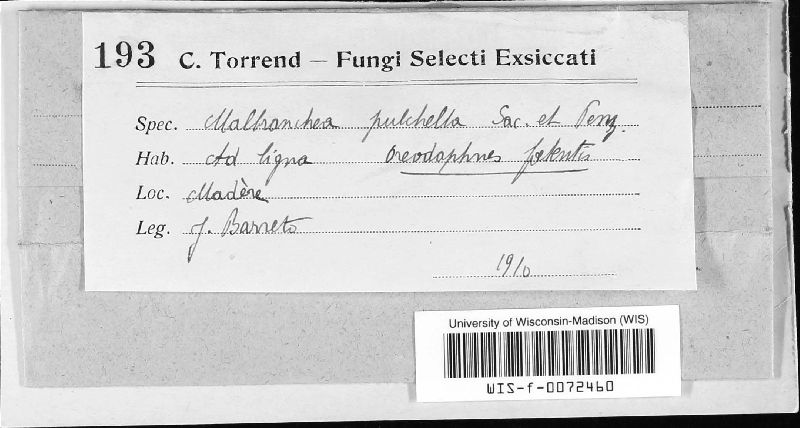 193 C. Torrend — Fungi Selecti Exsiccati
Spec. Malbranchea pulchella Sac. et Penz.
Hab. Ad ligna Oreodaphnes foetentis
Loc. Madère
Leg. J. Barreto
1910
University of Wisconsin-Madison (WIS)
WIS-f-0072460